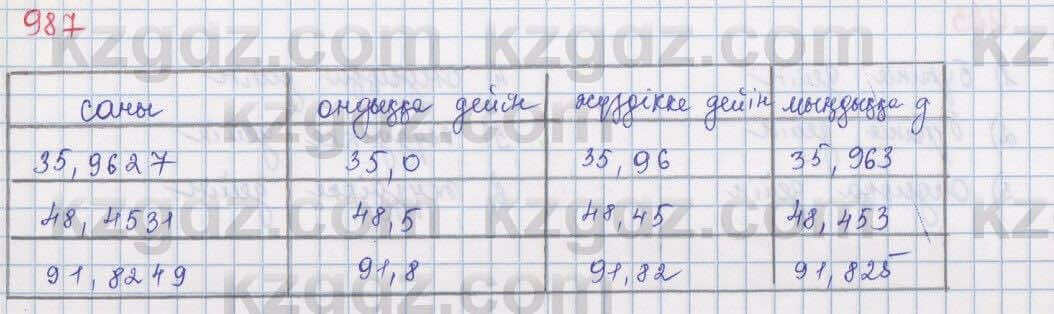 987
саны ондыққа дейін жүздікке дейін мыңдыққа д
35,9627 35,0 35,96 35,963
48,4531 48,5 48,45 48,453
91,8249 91,8 91,82 91,825
kzgdz.com kzgdz.com